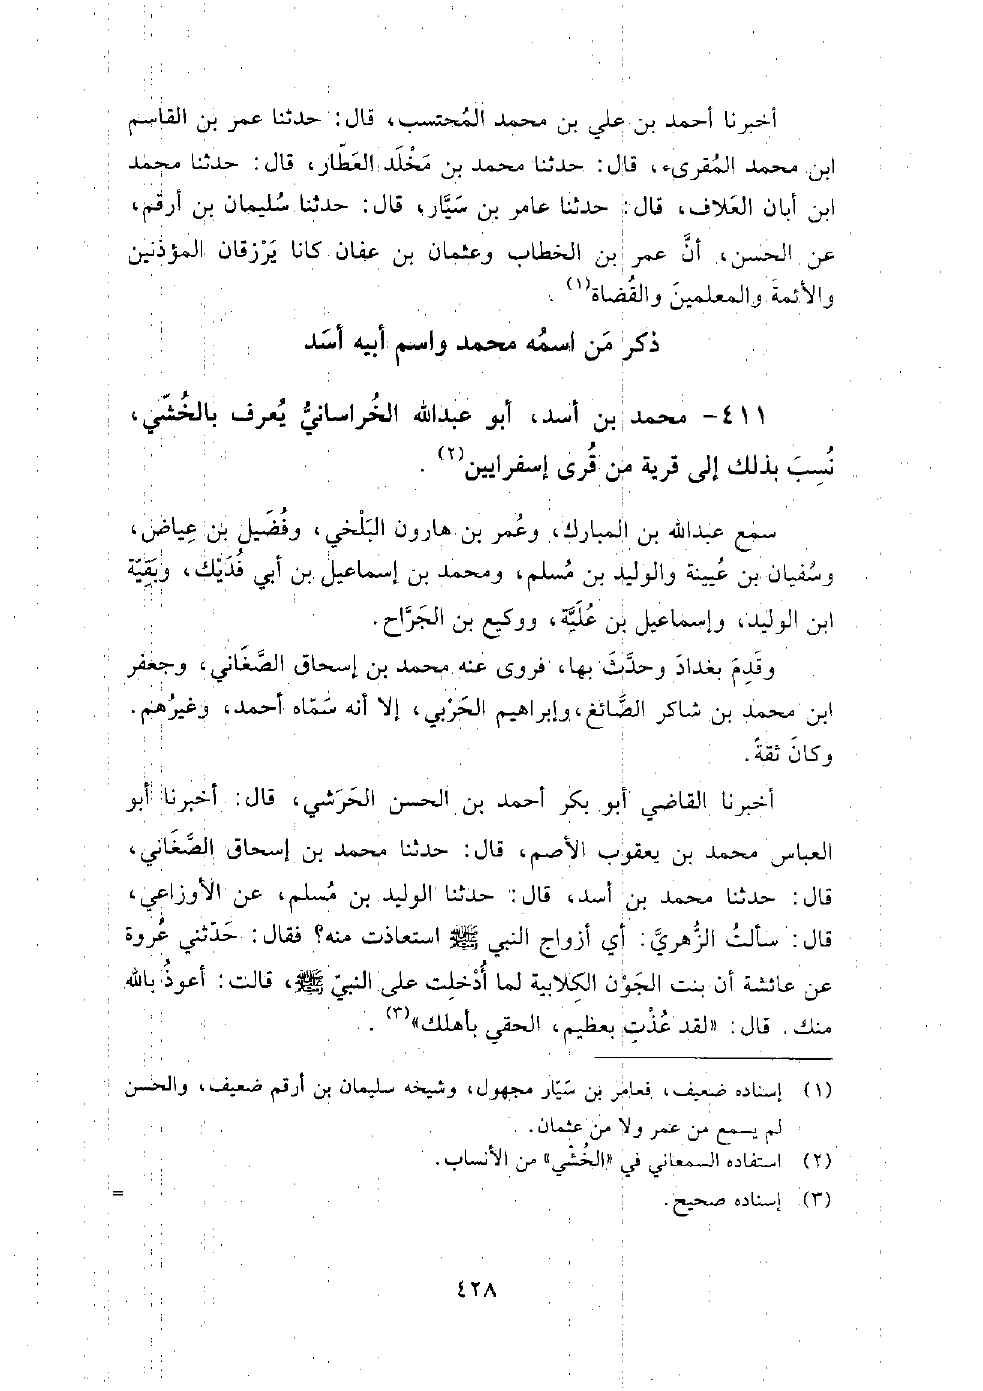 أخبرنا أحمد بن علي بن محمد المُحتسب، قال: حدثنا عمر بن القاسم
ابن محمد المُقرىء، قال: حدثنا محمد بن مَخْلَد العَطّار، قال: حدثنا محمد
ابن أبان العَلاف، قال: حدثنا عامر بن سَيَّار، قال: حدثنا سُليمان بن أرقم،
عن الحسن، أنَّ عمر بن الخطاب وعثمان بن عفان كانا يَرْزقان المؤذنين
والأئمةَ والمعلمينَ والقُضاة(١) .
ذكر مَن اسمُه محمد واسم أبيه أسَد
٤١١- محمد بن أسد، أبو عبدالله الخُراسانيُّ يُعرف بالخُشّي،
نُسِبَ بذلك إلى قرية من قُرى إسفرايين(٢) .
سمع عبدالله بن المبارك، وعُمر بن هارون البَلْخي، وفُضَيل بن عِياض،
وسُفيان بن عُيينة والوليد بن مُسلم، ومحمد بن إسماعيل بن أبي فُدَيْك، وبَقِيّة
ابن الوليد، وإسماعيل بن عُلَيَّة، ووكيع بن الجَرَّاح.
وقَدِمَ بغدادَ وحدَّثَ بها، فروى عنه محمد بن إسحاق الصَّغَاني، وجعفر
ابن محمد بن شاكر الصَّائغ، وإبراهيم الحَرْبي، إلا أنه سَمّاه أحمد، وغيرُهم.
وكانَ ثقةً.
أخبرنا القاضي أبو بكر أحمد بن الحسن الحَرَشي، قال: أخبرنا أبو
العباس محمد بن يعقوب الأصم، قال: حدثنا محمد بن إسحاق الصَّغَاني،
قال: حدثنا محمد بن أسد، قال: حدثنا الوليد بن مُسلم، عن الأوزاعي،
قال: سألتُ الزُّهريَّ: أي أزواج النبي ﷺ استعاذت منه؟ فقال: حَدّثني عُروة
عن عائشة أن بنت الجَوْن الكِلابية لما أُدْخلِت على النبيّ ﷺ، قالت: أعوذُ بالله
منك. قال: «لقد عُذْتِ بعظيم، الحقي بأهلك»(٣) .
(١) إسناده ضعيف، فعامر بن سَيّار مجهول، وشيخه سليمان بن أرقم ضعيف، والحسن
لم يسمع من عمر ولا من عثمان.
(٢) استفاده السمعاني في «الخُشّي» من الأنساب.
(٣) إسناده صحيح.
=
٤٢٨